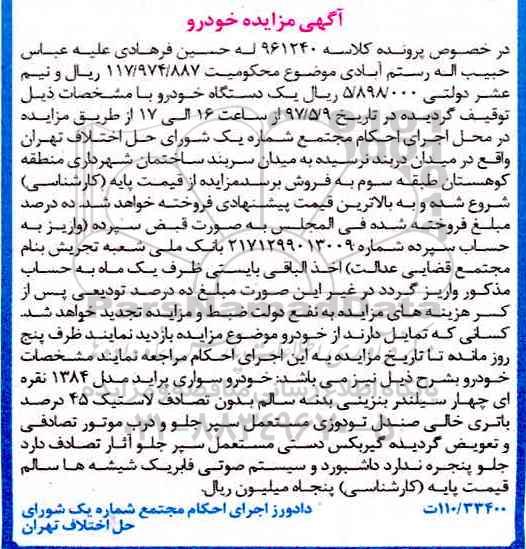 آگهی مزایده خودرو
در خصوص پرونده کلاسه ۹۶۱۲۴۰ له حسین فرهادی علیه عباس
حبیب اله رستم آبادی موضوع محکومیت ۱۱۷/۹۷۴/۸۸۷ ریال و نیم
عشر دولتی ۵/۸۹۸/۰۰۰ ریال یک دستگاه خودرو با مشخصات ذیل
توقیف گردیده در تاریخ ۹۷/۵/۹ از ساعت ۱۶ الی ۱۷ از طریق مزایده
در محل اجرای احکام مجتمع شماره یک شورای حل اختلاف تهران
واقع در میدان دربند نرسیده به میدان سربند ساختمان شهرداری منطقه
کوهستان طبقه سوم به فروش برسد.مزایده از قیمت پایه (کارشناسی)
شروع شده و به بالاترین قیمت پیشنهادی فروخته خواهد شد. ده درصد
مبلغ فروخته شده فی المجلس به صورت قبض سپرده (واریز به
حساب سپرده شماره ۲۱۷۱۲۹۹۰۱۳۰۰۹ بانک ملی شعبه تجریش بنام
مجتمع قضایی عدالت) اخذ الباقی بایستی ظرف یک ماه به حساب
مذکور واریز گردد در غیر این صورت مبلغ ده درصد تودیعی پس از
کسر هزینه های مزایده به نفع دولت ضبط و مزایده تجدید خواهد شد.
کسانی که تمایل دارند از خودرو موضوع مزایده بازدید نمایند ظرف پنج
روز مانده تا تاریخ مزایده به این اجرای احکام مراجعه نمایند مشخصات
خودرو بشرح ذیل نیز می باشد: خودرو سواری پراید مدل ۱۳۸۴ نقره
ای چهار سیلندر بنزینی بدنه سالم بدون تصادف لاستیک ۴۵ درصد
باتری خالی صندل تودوزی مستعمل سپر جلو و درب موتور تصادفی
و تعویض گردیده گیربکس دستی مستعمل سپر جلو آثار تصادف دارد
جلو پنجره ندارد داشبورد و سیستم صوتی فابریک شیشه ها سالم
قیمت پایه (کارشناسی) پنجاه میلیون ریال.
۱۱۰/۳۳۴۰۰ت دادورز اجرای احکام مجتمع شماره یک شورای
حل اختلاف تهران
ParsNamadData